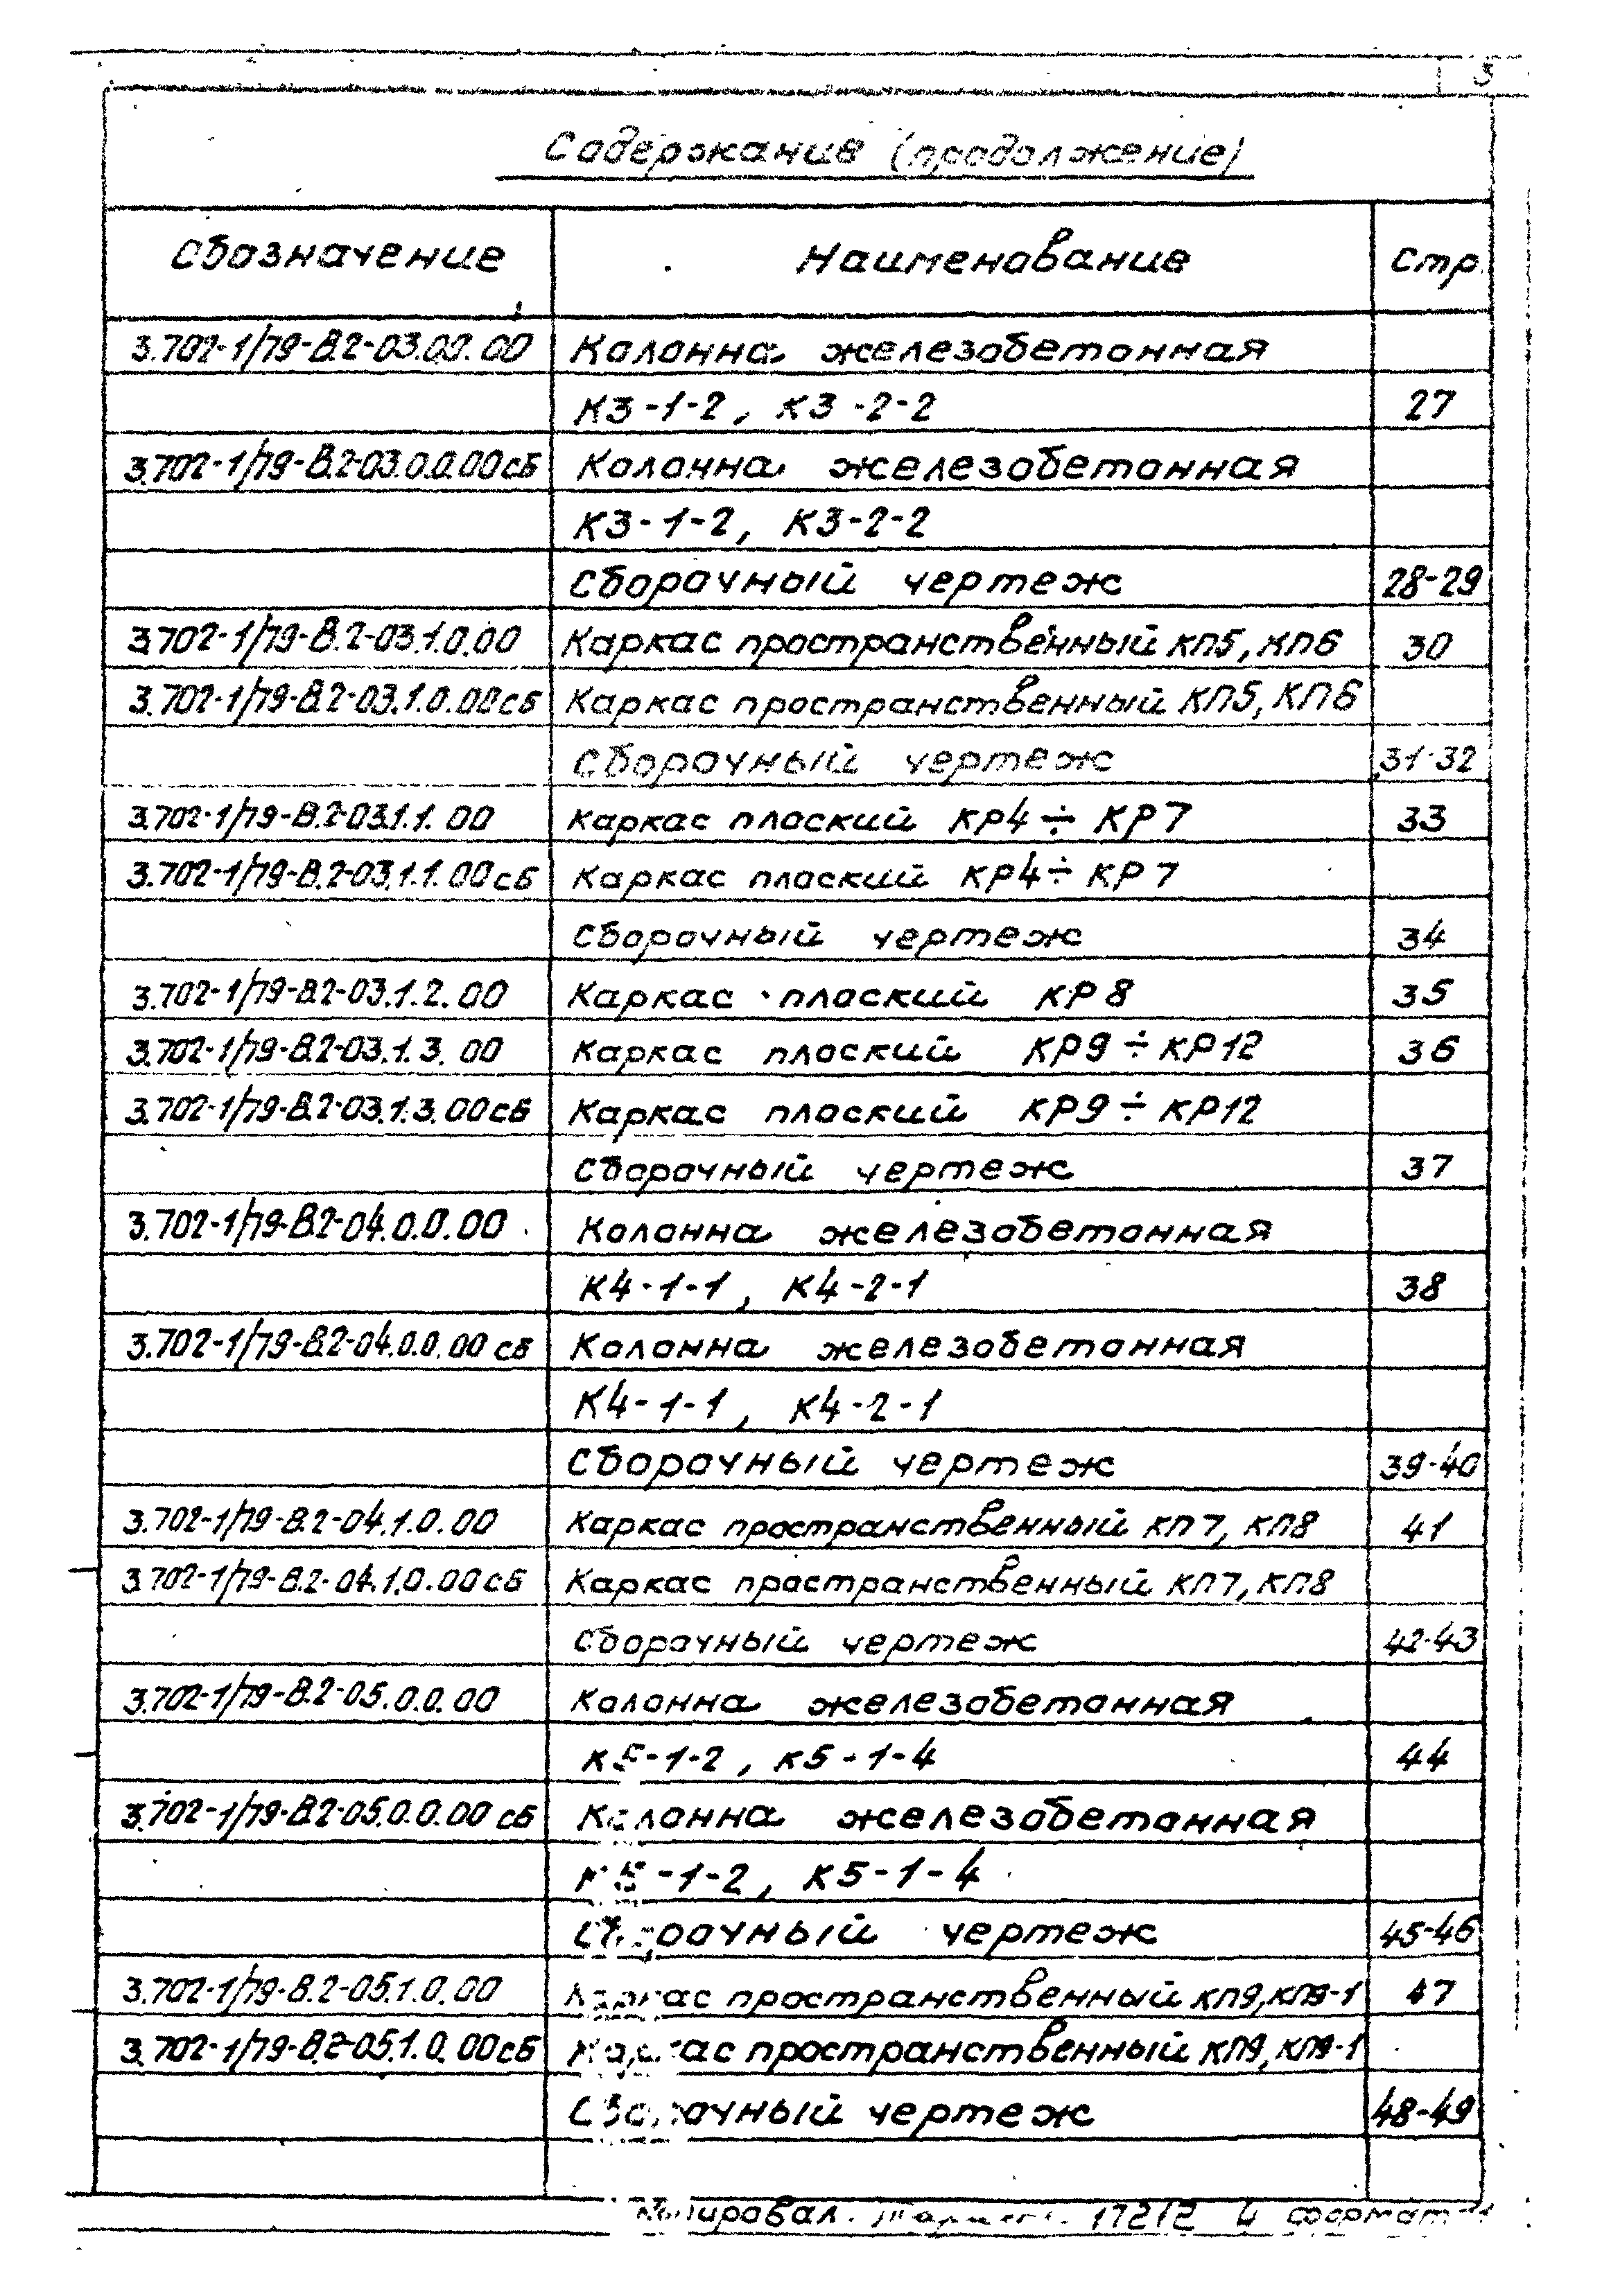 3
Содержание (продолжение)
Обозначение Наименование Стр.
3.702-1/79-В.2-03.0.0.00 Колонна железобетонная
К3-1-2, К3-2-2 27
3.702-1/79-В.2-03.0.0.00СБ Колонна железобетонная
К3-1-2, К3-2-2
Сборочный чертеж 28-29
3.702-1/79-В.2-03.1.0.00 Каркас пространственный КП5, КП6 30
3.702-1/79-В.2-03.1.0.00СБ Каркас пространственный КП5, КП6
Сборочный чертеж 31-32
3.702-1/79-В.2-03.1.1.00 Каркас плоский КР4÷КР7 33
3.702-1/79-В.2-03.1.1.00СБ Каркас плоский КР4÷КР7
Сборочный чертеж 34
3.702-1/79-В.2-03.1.2.00 Каркас плоский КР8 35
3.702-1/79-В.2-03.1.3.00 Каркас плоский КР9÷КР12 36
3.702-1/79-В.2-03.1.3.00СБ Каркас плоский КР9÷КР12
Сборочный чертеж 37
3.702-1/79-В.2-04.0.0.00 Колонна железобетонная
К4-1-1, К4-2-1 38
3.702-1/79-В.2-04.0.0.00 СБ Колонна железобетонная
К4-1-1, К4-2-1
Сборочный чертеж 39-40
3.702-1/79-В.2-04.1.0.00 Каркас пространственный КП7, КП8 41
3.702-1/79-В.2-04.1.0.00СБ Каркас пространственный КП7, КП8
Сборочный чертеж 42-43
3.702-1/79-В.2-05.0.0.00 Колонна железобетонная
К5-1-2, К5-1-4 44
3.702-1/79-В.2-05.0.0.00 СБ Колонна железобетонная
К5-1-2, К5-1-4
Сборочный чертеж 45-46
3.702-1/79-В.2-05.1.0.00 Каркас пространственный КП9, КП9-1 47
3.702-1/79-В.2-05.1.0.00СБ Каркас пространственный КП9, КП9-1
Сборочный чертеж 48-49
Копировал 17212 4 формат